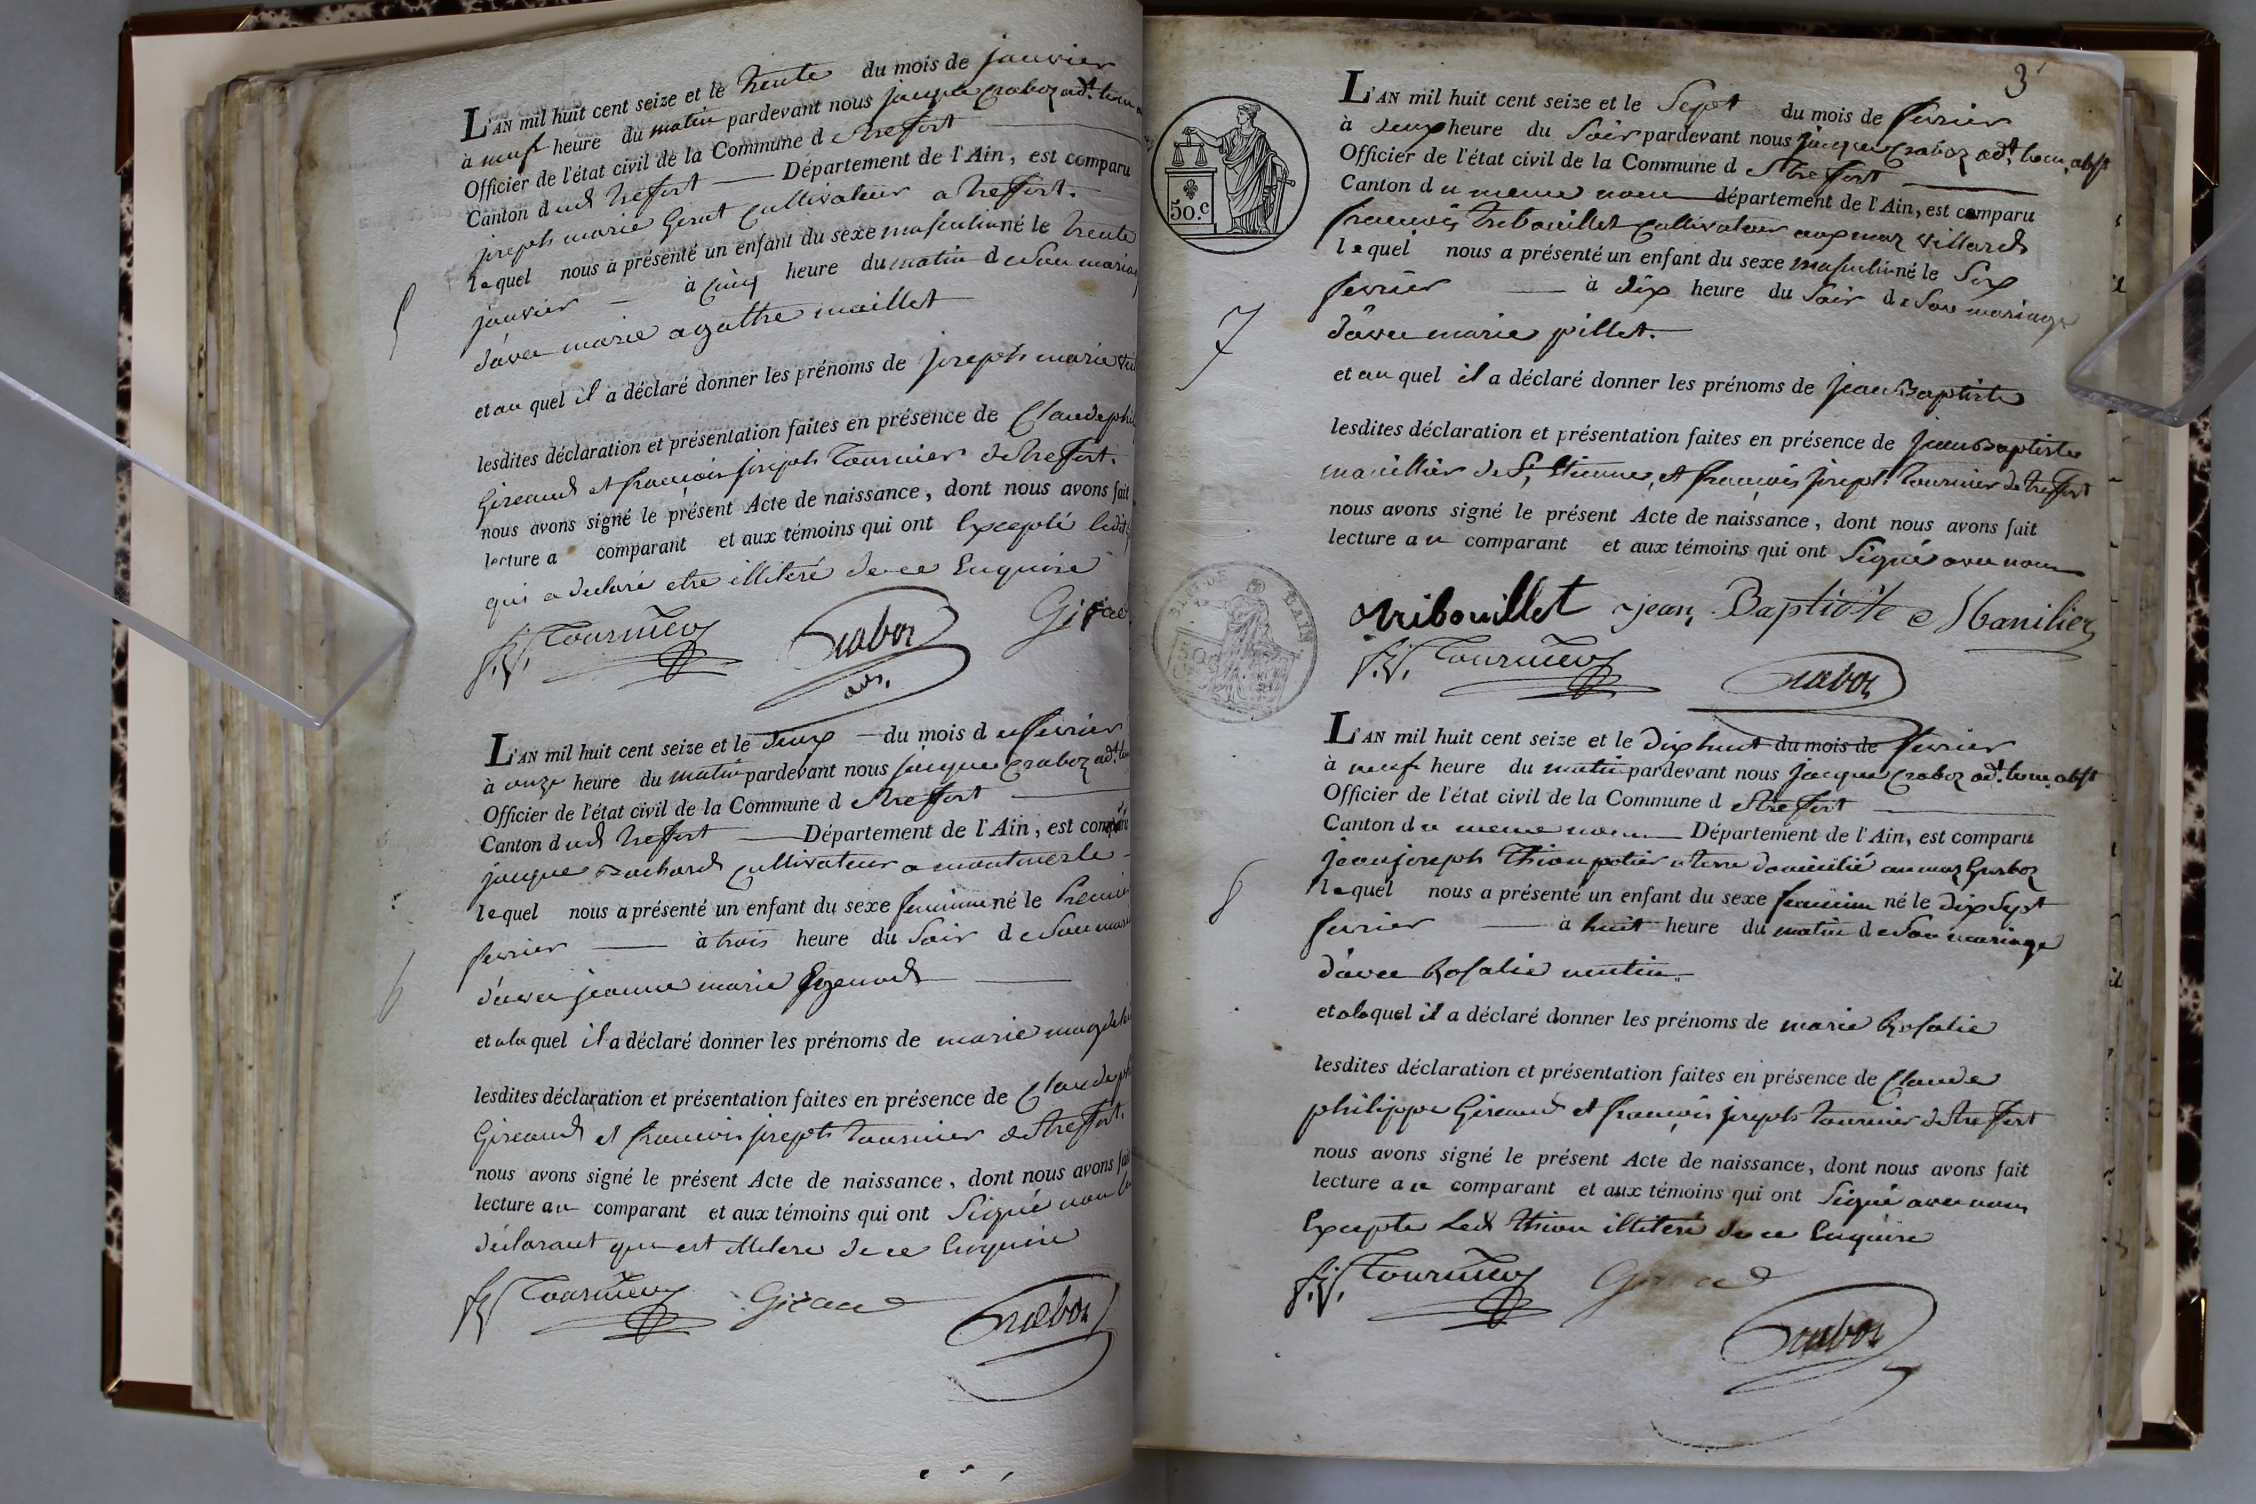 L'AN mil huit cent seize et le trente du mois de janvier
à neuf heure du matin pardevant nous jacque Craboz adt.
Officier de l'état civil de la Commune d Treffort
Canton dud treffort Département de l'Ain, est comparu
joseph marie cultivateur a treffort.
lequel nous a présenté un enfant du sexe masculin né le trente
janvier à cinq heure du matin de son mariag
d'avec marie agathe maillet
et au quel il a déclaré donner les prénoms de joseph marie
lesdites déclaration et présentation faites en présence de Claude phi
Gireaud et françois joseph tournier de treffort.
nous avons signé le présent Acte de naissance, dont nous avons fait
lecture a comparant et aux témoins qui ont Excepté ledit
qui a declaré etre illiteré de ce Enquiré
f.j. Tournier Craboz Girau
adj.
5
L'AN mil huit cent seize et le deux du mois de fevrier
à onze heure du matin pardevant nous jacque Craboz adt.
Officier de l'état civil de la Commune d Treffort
Canton dud treffort Département de l'Ain, est comparu
jacque Bachard cultivateur a montmerle
lequel nous a présenté un enfant du sexe feminin né le Premier
fevrier à trois heure du Soir de son mari
d'avec jeanne marie
et a la quel il a déclaré donner les prénoms de marie magdel
lesdites déclaration et présentation faites en présence de Claude ph
Gireaud et françois joseph tournier de treffort.
nous avons signé le présent Acte de naissance, dont nous avons fait
lecture au comparant et aux témoins qui ont Signé non le
déclarant que est illiteré de ce Enquiré
f.j. Tournier Giraud Craboz
6
3
50.c
L'AN mil huit cent seize et le Sept du mois de fevrier
à deux heure du Soir pardevant nous jacque Craboz adt. tom. abst
Officier de l'état civil de la Commune d Treffort
Canton du meme nom département de l'Ain, est comparu
francois tribouillet cultivateur au maz villard
lequel nous a présenté un enfant du sexe masculin né le Six
fevrier à dix heure du Soir de son mariage
d'avec marie pillet.
et au quel il a déclaré donner les prénoms de jean Baptiste
lesdites déclaration et présentation faites en présence de jean Baptiste
manillier de St. Etienne, et françois joseph tournier de treffort
nous avons signé le présent Acte de naissance, dont nous avons fait
lecture au comparant et aux témoins qui ont Signé avec nous
tribouillet jean Baptiste Manilier
f.j. Tournier Craboz
7
L'AN mil huit cent seize et le dix huit du mois de fevrier
à neuf heure du matin pardevant nous jacque Craboz adt. tom. abst
Officier de l'état civil de la Commune d Treffort
Canton du meme nom Département de l'Ain, est comparu
jean joseph thion potier a terre domicilié au maz
lequel nous a présenté un enfant du sexe feminin né le dix Sept
fevrier à huit heure du matin de son mariage
d'avec Rosalie
et a la quel il a déclaré donner les prénoms de marie Rosalie
lesdites déclaration et présentation faites en présence de Claude
philippe Gireaud et francois joseph tournier de treffort
nous avons signé le présent Acte de naissance, dont nous avons fait
lecture au comparant et aux témoins qui ont Signé avec nous
Excepté Led thion illiteré de ce Enquiré
f.j. Tournier Giraud
Craboz
8